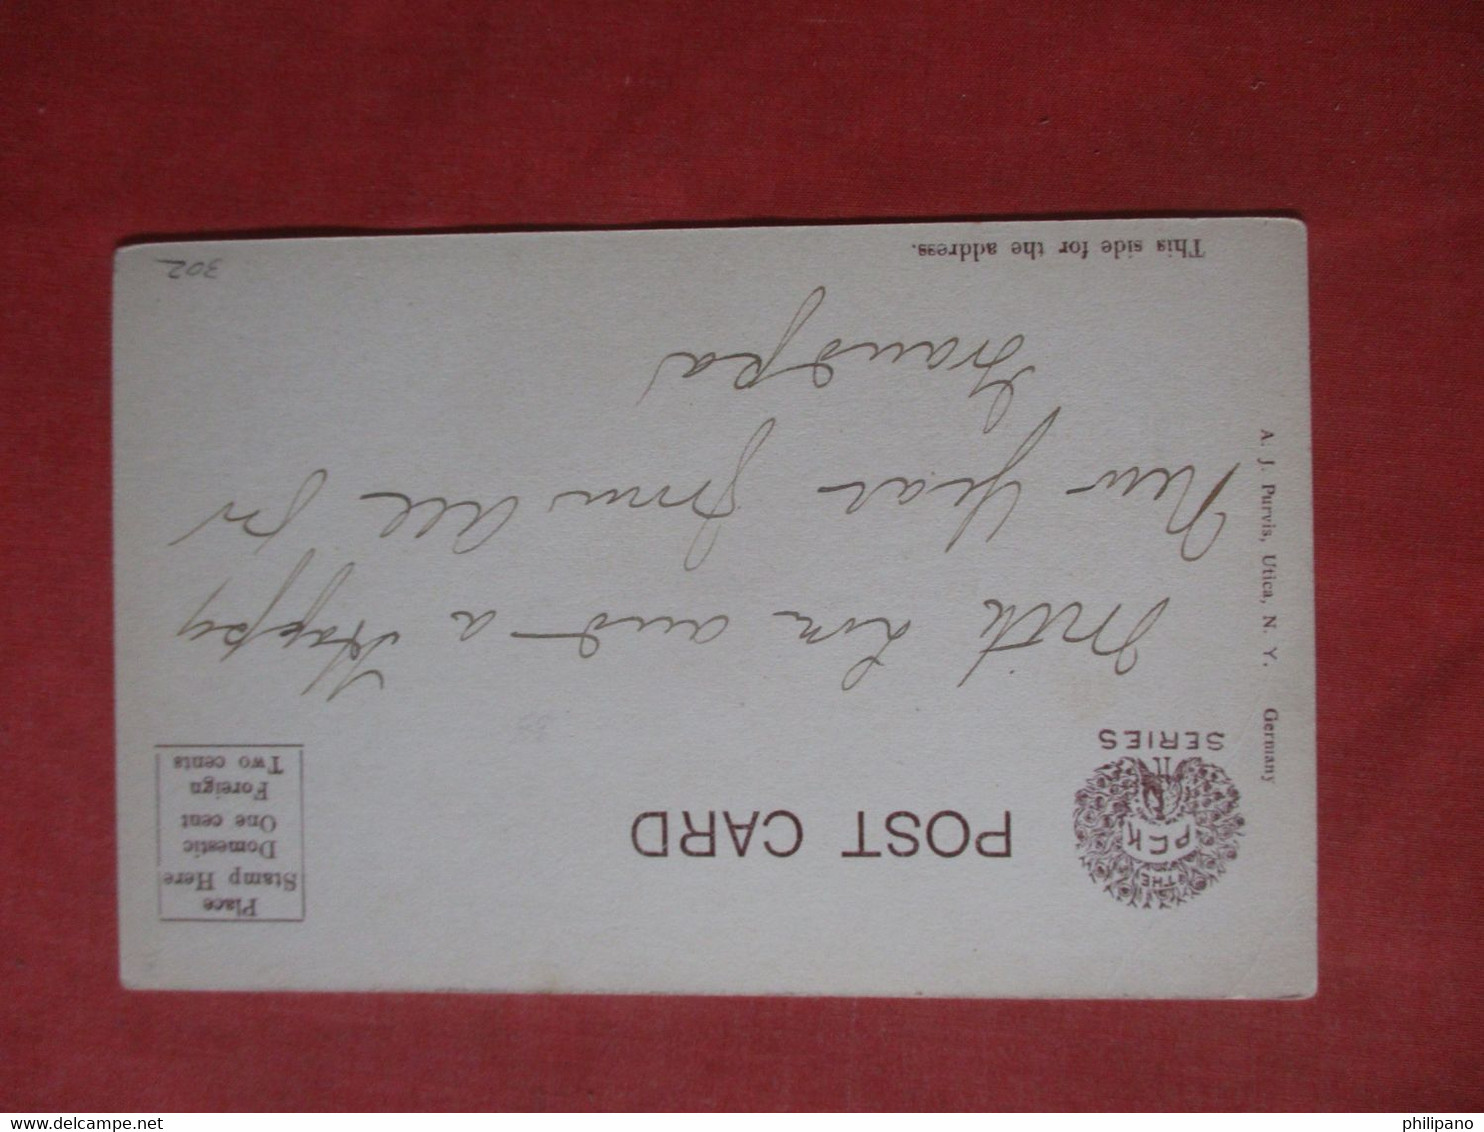 THE
PCK
SERIES
POST CARD
Place
Stamp Here
Domestic
One cent
Foreign
Two cents
With Lov and a Happy
New Year from all for
Grandpa
A. J. Purvis, Utica, N. Y. Germany
This side for the address.
302
philipano
delcampe.net